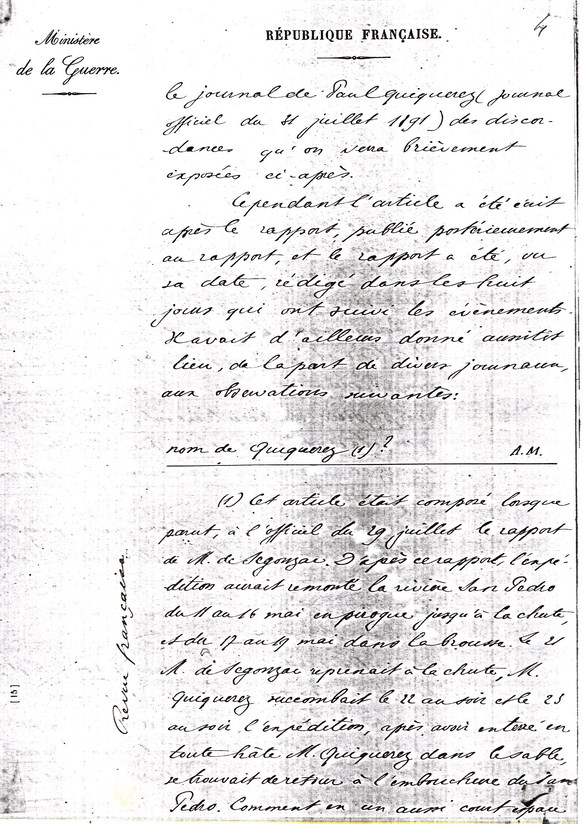 4
Ministère
de la Guerre.
RÉPUBLIQUE FRANÇAISE.
le journal de Paul Quiquerez (journal
officiel du 31 juillet 1891) des discor-
dances qu'on verra brièvement
exposées ci-après.
Cependant l'article a été écrit
après le rapport, publié postérieurement
au rapport, et le rapport a été, vu
sa date, rédigé dans les huit
jours qui ont suivi les évènements.
Il avait d'ailleurs donné aussitôt
lieu, de la part de divers journaux,
aux observations suivantes:
nom de Quiquerez (1)?
A.M.
(1) Cet article était composé lorsque
parut, à l'officiel du 29 juillet le rapport
de M. de Segonzac. D'après ce rapport, l'expé-
dition aurait remonté la rivière San Pedro
du 11 au 16 mai en pirogue jusqu'à la chute,
et du 17 au 19 mai dans la brousse. Le 21
M. de Segonzac reprenait à la chute, M.
Quiquerez succombait le 22 au soir et le 23
au soir l'expédition, après avoir enterré en
toute hâte M. Quiquerez dans le sable,
se trouvait de retour à l'embouchure du San
Pedro. Comment en un aussi court espace
Revue française
[15]